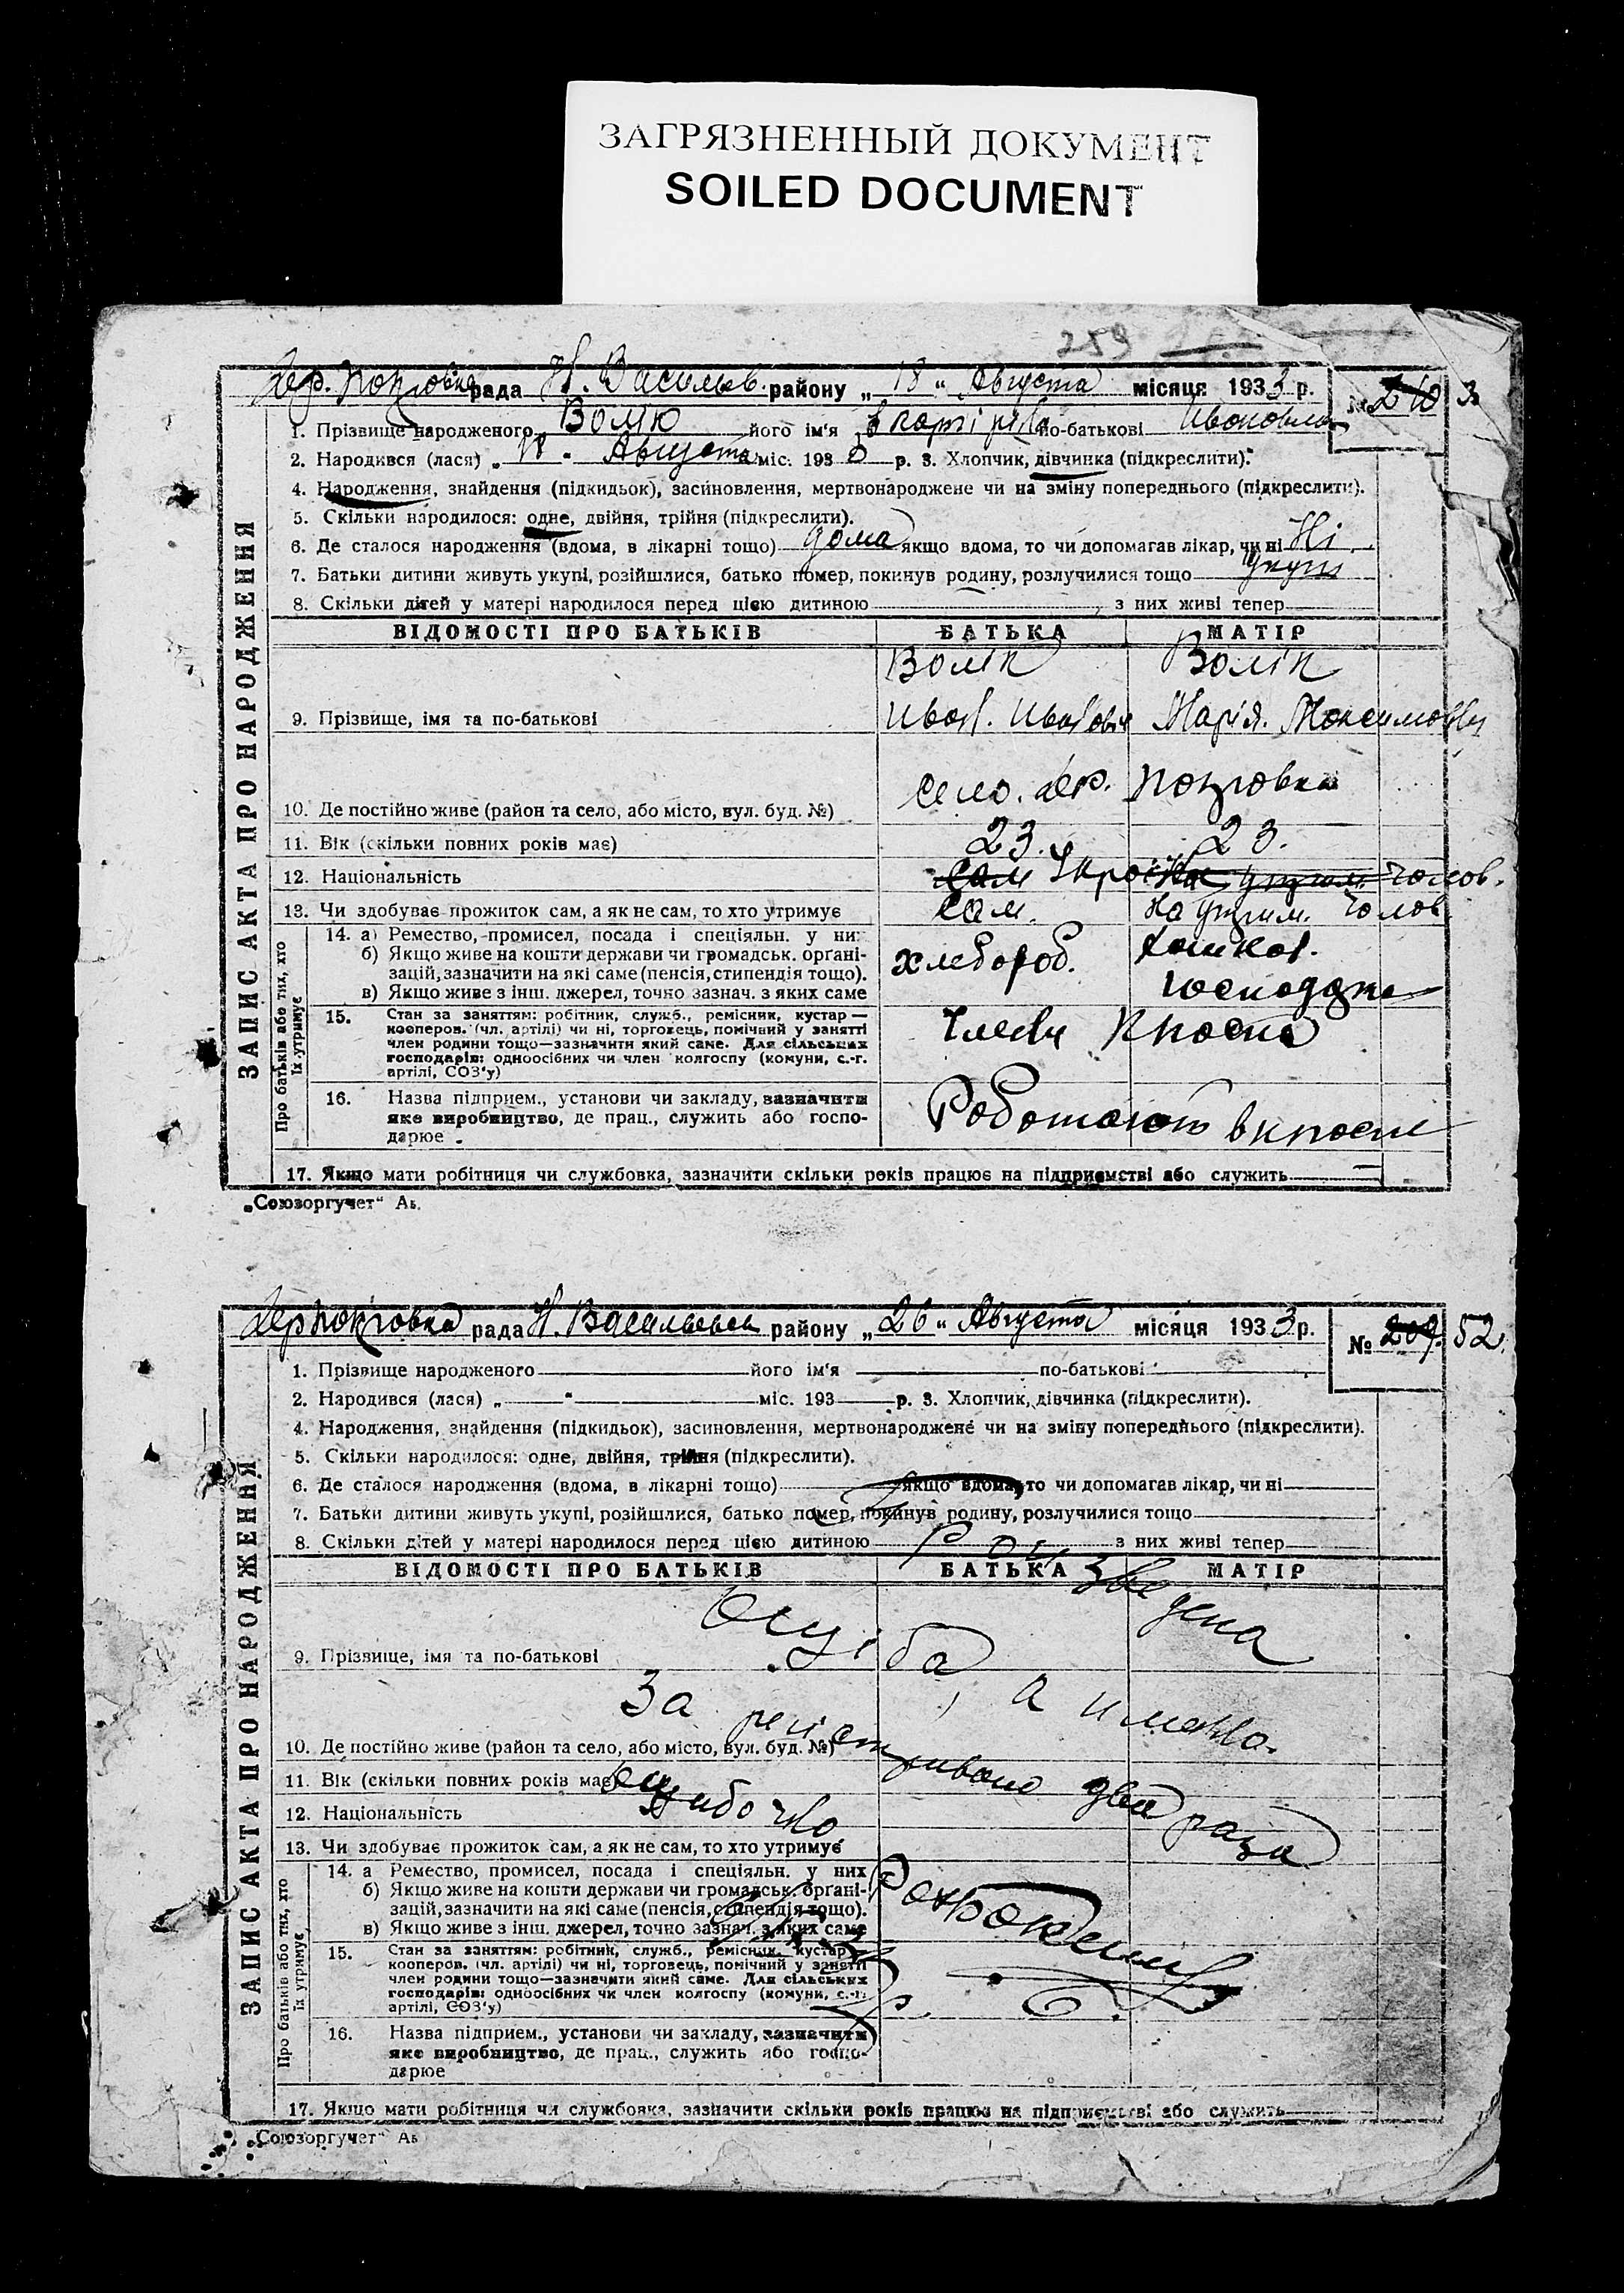 ЗАГРЯЗНЕННЫЙ ДОКУМЕНТ
SOILED DOCUMENT
259
рада Н. Васильев. району „ 18 “ Августа місяця 1933 р.
№ 210
1. Прізвище народженого його ім'я по-батькові Ивановна
2. Народився (лася) „ 18 “ Августа міс. 193 3 р. 3. Хлопчик, дівчинка (підкреслити).
4. Народження, знайдення (підкидьок), засиновлення, мертвонароджене чи на зміну попереднього (підкреслити).
5. Скільки народилося: одне, двійня, трійня (підкреслити).
6. Де сталося народження (вдома, в лікарні тощо) дома якщо вдома, то чи допомагав лікар, чи ні Ні
7. Батьки дитини живуть укупі, розійшлися, батько помер, покинув родину, розлучилися тощо укупі
8. Скільки дітей у матері народилося перед цією дитиною з них живі тепер
ЗАПИС АКТА ПРО НАРОДЖЕННЯ
ВІДОМОСТІ ПРО БАТЬКІВ БАТЬКА МАТІР
Волік Волік
9. Прізвище, імя та по-батькові Иван. Иванович Марія. Максимовна
село. дер. Покровка
10. Де постійно живе (район та село, або місто, вул. буд. №)
11. Вік (скільки повних років має) 23. 23.
12. Національність
13. Чи здобуває прожиток сам, а як не сам, то хто утримує сам. на утрим. чолов.
Про батьків або тих, хто їх утримує
14. а) Ремество, промисел, посада і спеціяльн. у них
б) Якщо живе на кошти держави чи громадськ. органі-
зацій, зазначити на які саме (пенсія, стипендія тощо).
в) Якщо живе з інш. джерел, точно зазнач. з яких саме
хлебороб.
15. Стан за заняттям: робітник, служб., ремісник, кустар —
кооперов. (чл. артілі) чи ні, торговець, помічний у занятті
член родини тощо—зазначити який саме. Для сільських
господарів: одноосібних чи член колгоспу (комуни, с.-г.
артілі, СОЗ'у)
16. Назва підприєм., установи чи закладу, зазначити
яке виробництво, де прац., служить або госпо-
дарює
17. Якщо мати робітниця чи службовка, зазначити скільки років працює на підприємстві або служить
„Союзоргучет“
рада Н. Васильевск району „ 26 “ Августа місяця 193 3 р.
№ 209. 52.
1. Прізвище народженого його ім'я по-батькові
2. Народився (лася) „ “ міс. 193 р. 3. Хлопчик, дівчинка (підкреслити).
4. Народження, знайдення (підкидьок), засиновлення, мертвонароджене чи на зміну попереднього (підкреслити).
5. Скільки народилося: одне, двійня, трійня (підкреслити).
6. Де сталося народження (вдома, в лікарні тощо) якщо вдома, то чи допомагав лікар, чи ні
7. Батьки дитини живуть укупі, розійшлися, батько помер, покинув родину, розлучилися тощо
8. Скільки дітей у матері народилося перед цією дитиною з них живі тепер
ЗАПИС АКТА ПРО НАРОДЖЕННЯ
ВІДОМОСТІ ПРО БАТЬКІВ БАТЬКА МАТІР
9. Прізвище, імя та по-батькові
, а имено.
10. Де постійно живе (район та село, або місто, вул. буд. №)
11. Вік (скільки повних років має)
12. Національність
два раза
13. Чи здобуває прожиток сам, а як не сам, то хто утримує
Про батьків або тих, хто їх утримує
14. а Ремество, промисел, посада і спеціяльн. у них
б) Якщо живе на кошти держави чи громадськ. органі-
зацій, зазначити на які саме (пенсія, стипендія тощо).
в) Якщо живе з інш. джерел, точно зазнач. з яких саме
15. Стан за заняттям: робітник, служб., ремісник, кустар
кооперов. (чл. артілі) чи ні, торговець, помічний у занятті
член родини тощо—зазначити який саме. Для сільських
господарів: одноосібних чи член колгоспу (комуни, с.-г.
артілі, СОЗ'у)
16. Назва підприєм., установи чи закладу, зазначити
яке виробництво, де прац., служить або госпо-
дарює
17. Якщо мати робітниця чи службовка, зазначити скільки років працює на підприємстві або служить
„Союзоргучет“